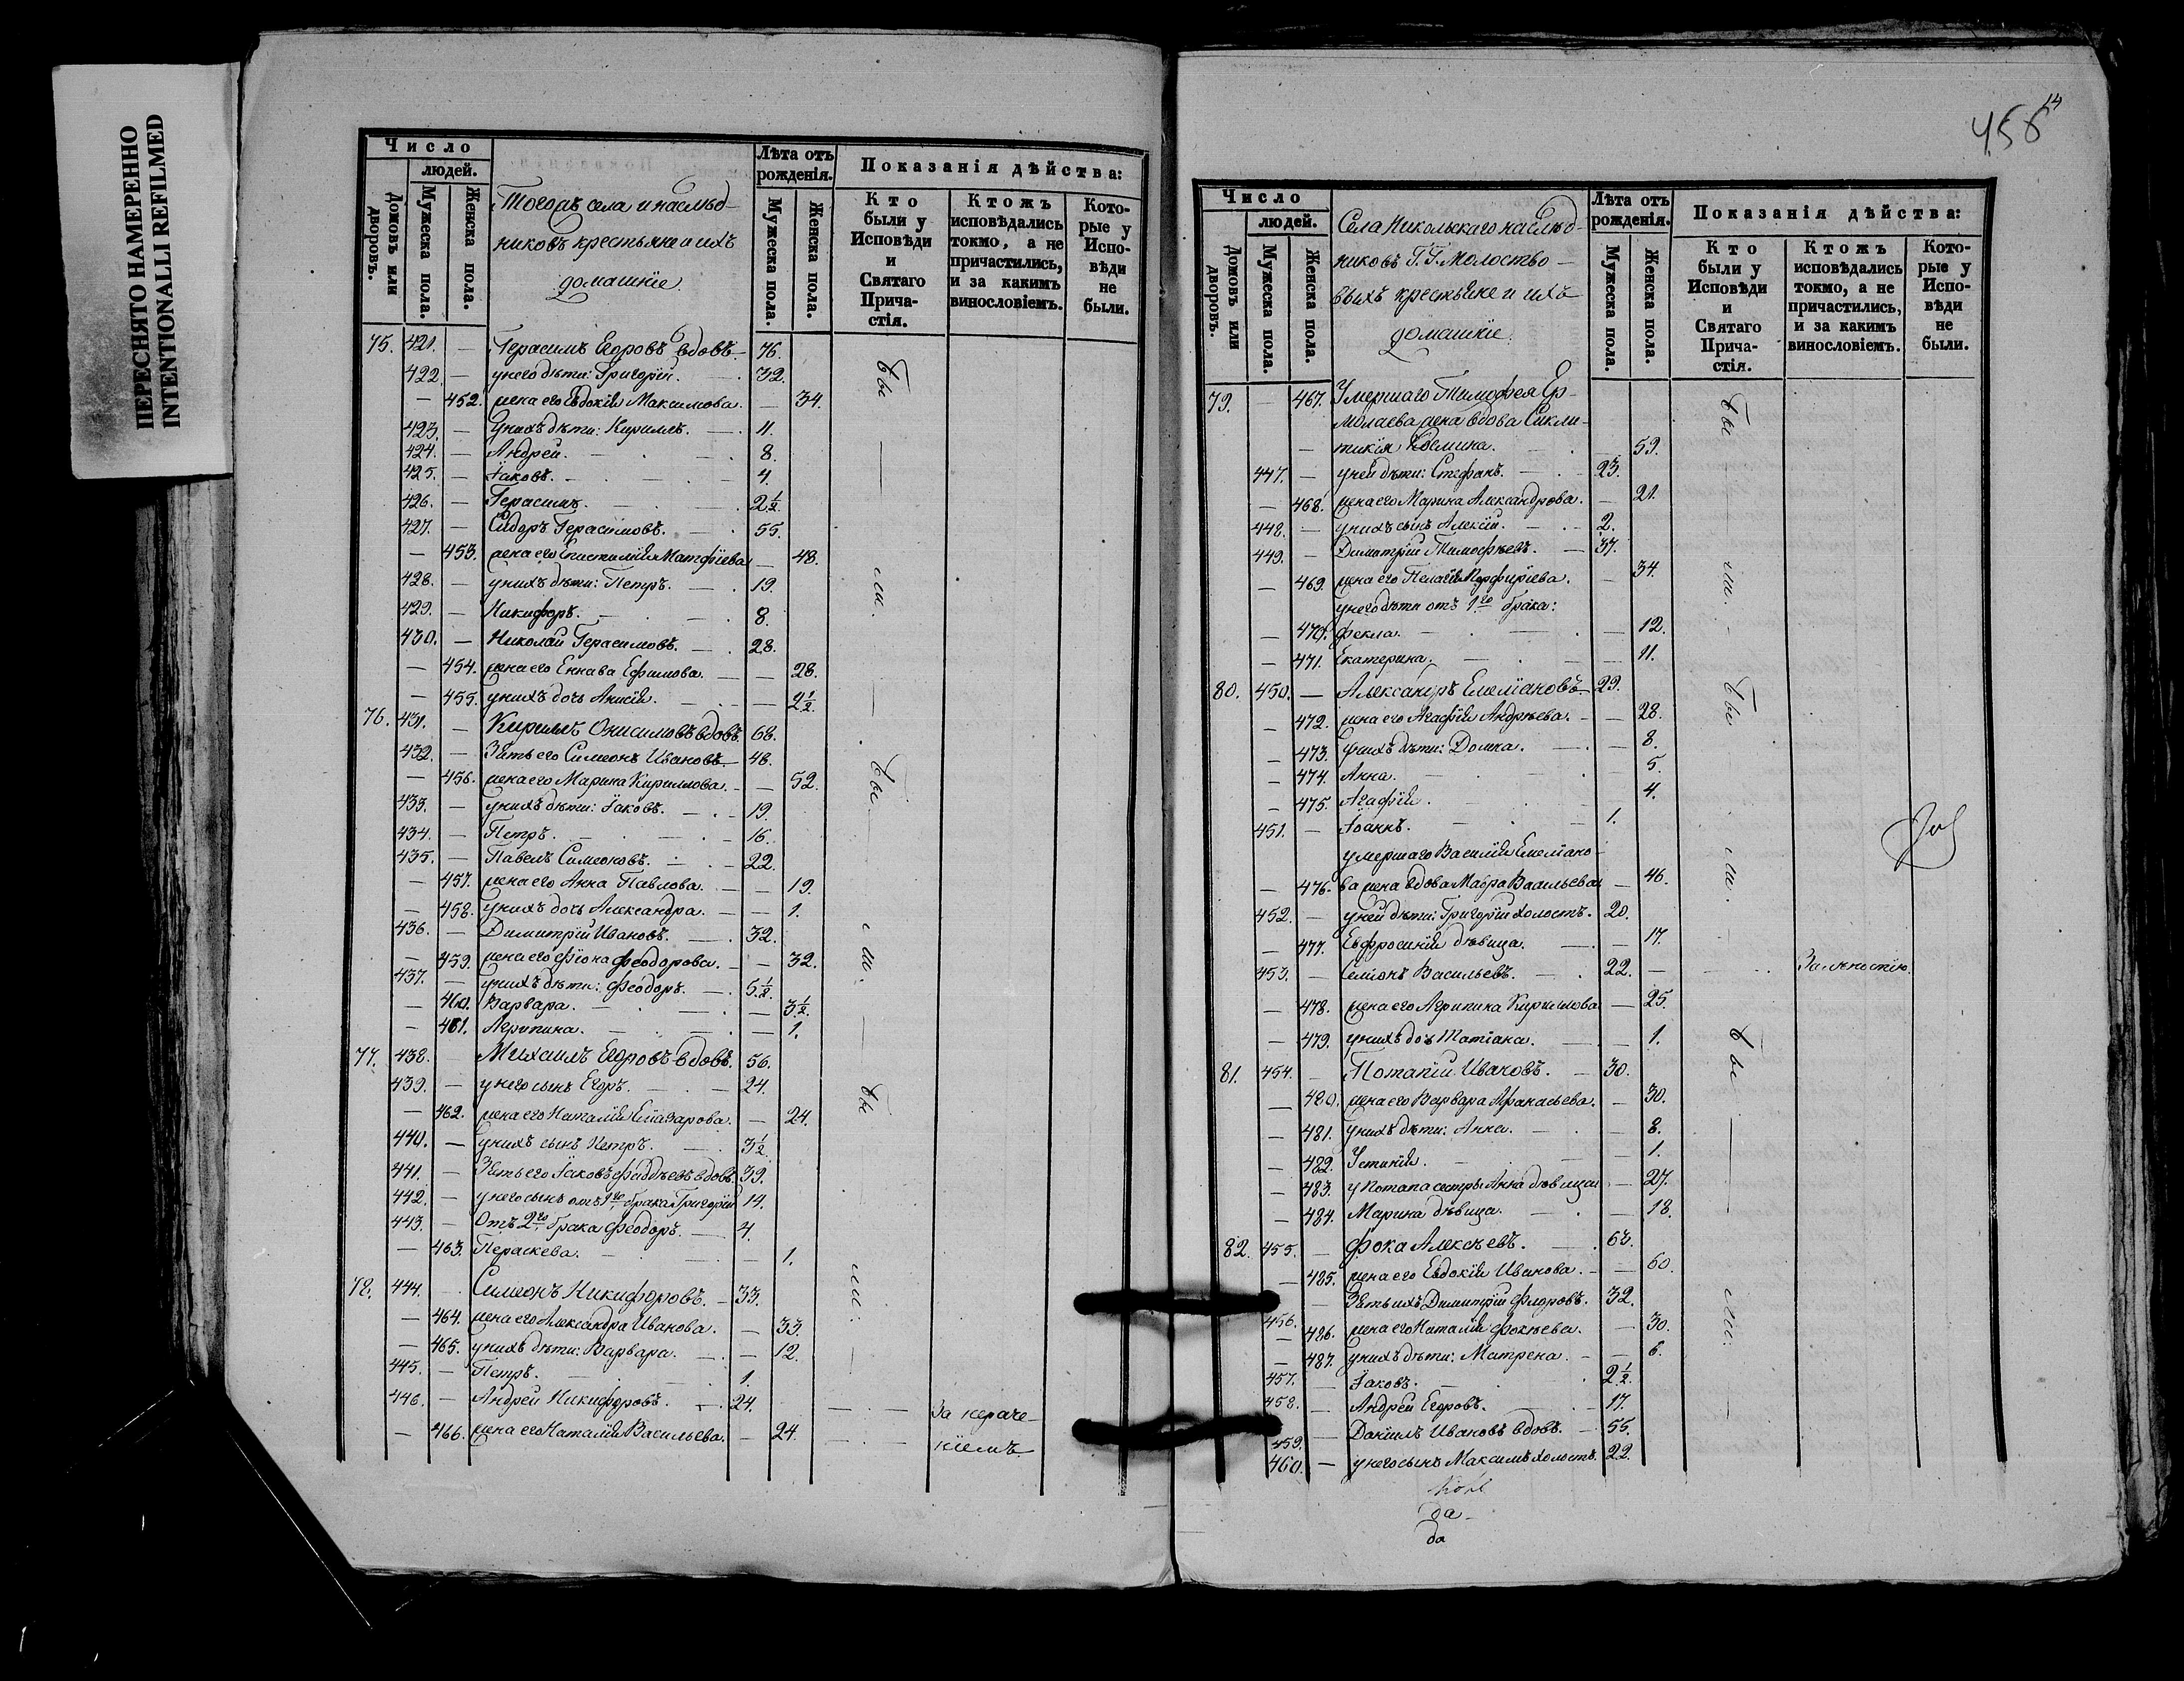 ПЕРЕСНЯТО НАМЕРЕННО
INTENTIONALLI REFILMED
Число
людей.
Домовъ или дворовъ.
Мужеска пола.
Женска пола.
Тогожъ села и наслѣд-
никовъ крестьяне и ихъ
домашніе
Лѣта отъ рожденія.
Мужеска пола.
Женска пола.
Показанія дѣйства:
Кто были у Исповѣди и Святаго Прича-стія.
Ктожъ исповѣдались токмо, а не причастились, и за какимъ винословіемъ.
Кото-рые у Испо-вѣди не были.
75. 421. — Герасимъ Егоровъ вдовъ. 76.
422. — у него дѣти: Григорій. 32.
— 452. жена его Евдокія Максимова. — 34.
423. — У нихъ дѣти: Кириллъ. 11.
424. — Андрей. 8.
425. — Іаковъ. 4.
426. — Герасимъ. 2½
427. — Сидоръ Герасимовъ. 55.
— 453. жена его Матфіева — 48.
428. — у нихъ дѣти: Петръ. 19.
429. — Никифоръ. 8.
430. — Николай Герасимовъ. 28.
— 454. жена его Ефимова. — 28.
— 455. у нихъ дочь Анисія. — 2½.
76. 431. — Кириллъ Онисимовъ вдовъ. 68.
432. — Зять его Симеонъ Ивановъ. 48.
— 456. жена его Марина Кириллова. — 52.
433. — у нихъ дѣти: Іаковъ. 19.
434. — Петръ. 16.
435. — Павелъ Симеоновъ. 22.
— 457. жена его Анна Павлова. — 19.
— 458. у нихъ дочь Александра. — 1.
436. — Димитрій Ивановъ. 32.
— 459. жена его Феодорова. — 32.
437. — у нихъ дѣти: Феодоръ. 5½.
— 460. Варвара. — 3½.
— 461. Агрипина. — 1.
77. 438. Михаилъ Егоровъ вдовъ. 56.
439. — у него сынъ Егоръ. 24.
— 462. жена его Наталія Елазарова. — 24.
440. — у нихъ сынъ Петръ. 3½
441. — Зять его Іаковъ вдовъ. 39.
442. — у него сынъ отъ 1го брака Григорій 14.
443. — Отъ 2го брака Феодоръ. 4.
— 463. Параскева. — 1.
78. 444. Симеонъ Никифоровъ. 33.
— 464. жена его Александра Иванова. — 33.
— 465. у нихъ дѣти: Варвара. — 12.
445. — Петръ. 1.
446. — Андрей Никифоровъ. 24. За нераче-
— 466. жена его Наталія Васильева. — 24. ніемъ
были. были. были.
456
14
Число
людей.
Домовъ или дворовъ.
Мужеска пола.
Женска пола.
Села Никольскаго наслѣд-
никовъ Г. Г. Молоство-
выхъ крестьяне и ихъ
домашніе
Лѣта отъ рожденія.
Мужеска пола.
Женска пола.
Показанія дѣйства:
Кто были у Исповѣди и Святаго Прича-стія.
Ктожъ исповѣдались токмо, а не причастились, и за какимъ винословіемъ.
Кото-рые у Испо-вѣди не были.
79. — 467. Умершаго Тимофея Ер-
молаева жена вдова Сикли-
тикія Козмина. 59.
447. — у ней дѣти: Стефанъ. 23.
— 468. жена его Марина Александрова. — 21.
448. — у нихъ сынъ Алексій. 2.
449. — Димитрій Тимофѣевъ. 37.
— 469. жена его Пелагія Порфиріева. — 34.
у него дѣти отъ 1го брака:
— 470. Фекла. — 12.
— 471. Екатерина. — 11.
80. 450. — Александръ Емеліановъ. 29.
— 472. жена его Агафія Андрѣева. — 28.
— 473. у нихъ дѣти: Домна. — 8.
— 474. Анна. 5.
— 475. Агафія. 4.
451. — Іоаннъ. 1.
умершаго Василія Емеліано-
— 476. ва жена вдова Мавра Васильева — 46.
452. — у ней дѣти: Григорій холостъ. 20.
— 477. Евфросинія дѣвица. — 17.
453. — Семіонъ Васильевъ. 22. — За лѣностію.
— 478. жена его Агрипина Кириллова — 25.
— 479. у нихъ дочь Татіана. — 1.
81. 454. — Потапій Ивановъ. 30.
— 480. жена его Варвара Афанасьева. — 30.
— 481. у нихъ дѣти: Анна. — 8.
— 482. Устинія. — 1.
— 483. у Потапа сестры Анна дѣвица — 27.
— 484. Марина дѣвица. — 18.
82. 455. — Фока Алексѣевъ. 63.
— 485. жена его Евдокія Иванова. — 60.
456. — Зять ихъ Димитрій Федоровъ. 32.
— 486. жена его Наталія Фокѣева. — 30.
— 487. у нихъ дѣти: Матрена. — 6.
457. — Іаковъ. 2½.
458. — Андрей Егоровъ. 17.
459. — Даніилъ Ивановъ вдовъ. 55.
460. — у него сынъ Максимъ холостъ. 22.
были. были. были.
да
да